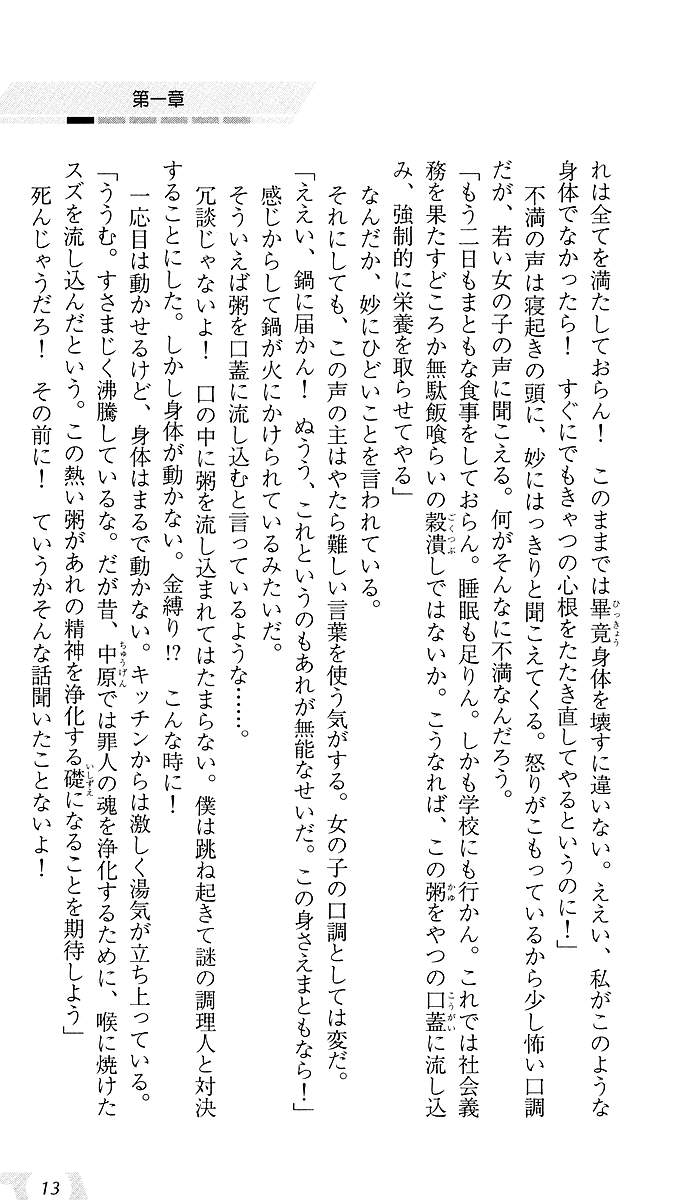 第一章
れは全てを満たしておらん！　このままでは畢竟身体を壊すに違いない。ええい、私がこのような
身体でなかったら！　すぐにでもきゃつの心根をたたき直してやるというのに！」
不満の声は寝起きの頭に、妙にはっきりと聞こえてくる。怒りがこもっているから少し怖い口調
だが、若い女の子の声に聞こえる。何がそんなに不満なんだろう。
「もう二日もまともな食事をしておらん。睡眠も足りん。しかも学校にも行かん。これでは社会義
務を果たすどころか無駄飯喰らいの穀潰しではないか。こうなれば、この粥をやつの口蓋に流し込
み、強制的に栄養を取らせてやる」
なんだか、妙にひどいことを言われている。
それにしても、この声の主はやたら難しい言葉を使う気がする。女の子の口調としては変だ。
「ええい、鍋に届かん！　ぬうう、これというのもあれが無能なせいだ。この身さえまともなら！」
感じからして鍋が火にかけられているみたいだ。
そういえば粥を口蓋に流し込むと言っているような……。
冗談じゃないよ！　口の中に粥を流し込まれてはたまらない。僕は跳ね起きて謎の調理人と対決
することにした。しかし身体が動かない。金縛り!?　こんな時に！
一応目は動かせるけど、身体はまるで動かない。キッチンからは激しく湯気が立ち上っている。
「ううむ。すさまじく沸騰しているな。だが昔、中原では罪人の魂を浄化するために、喉に焼けた
スズを流し込んだという。この熱い粥があれの精神を浄化する礎になることを期待しよう」
死んじゃうだろ！　その前に！　ていうかそんな話聞いたことないよ！
13